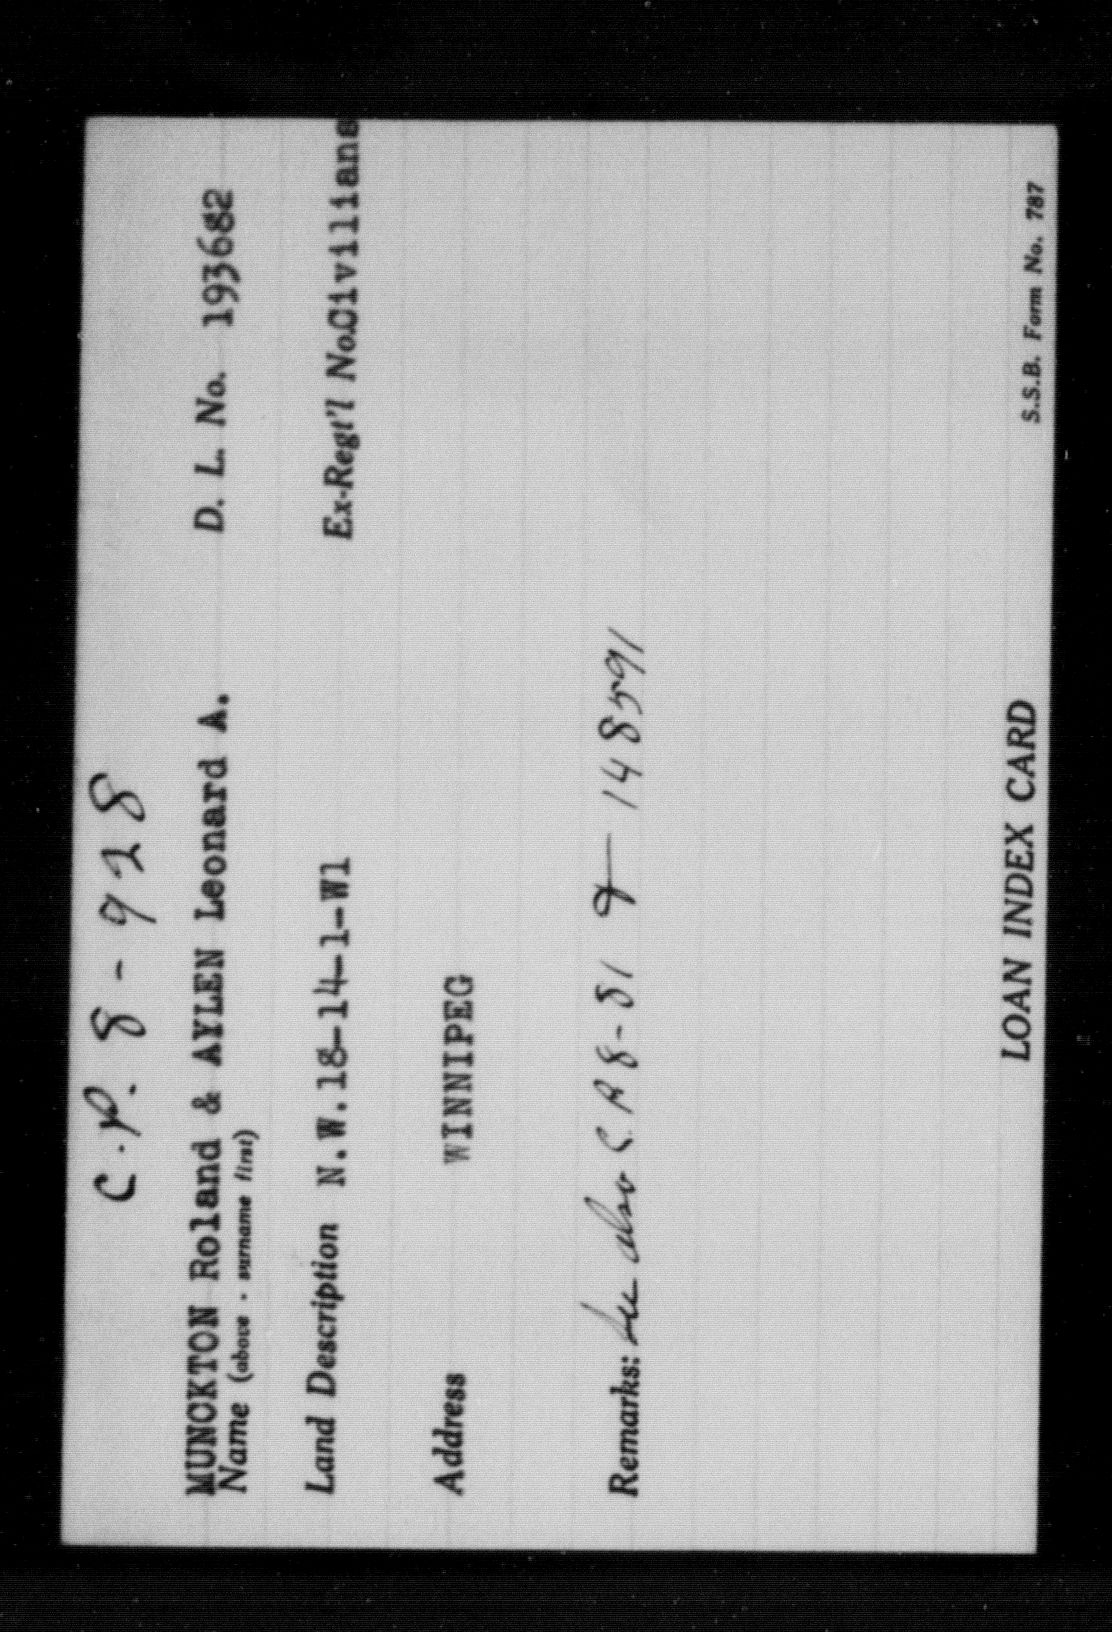 C.P. 8-928
MUNCKTON Roland & AYLEN Leonard A. D. L. No. 193682
Name (above - surname first)
Land Description N.W.18-14-1-W1 Ex-Regt'l No.Civilians
Address WINNIPEG
Remarks: See also C.A 8-81 & 148591
LOAN INDEX CARD S.S.B. Form No. 787